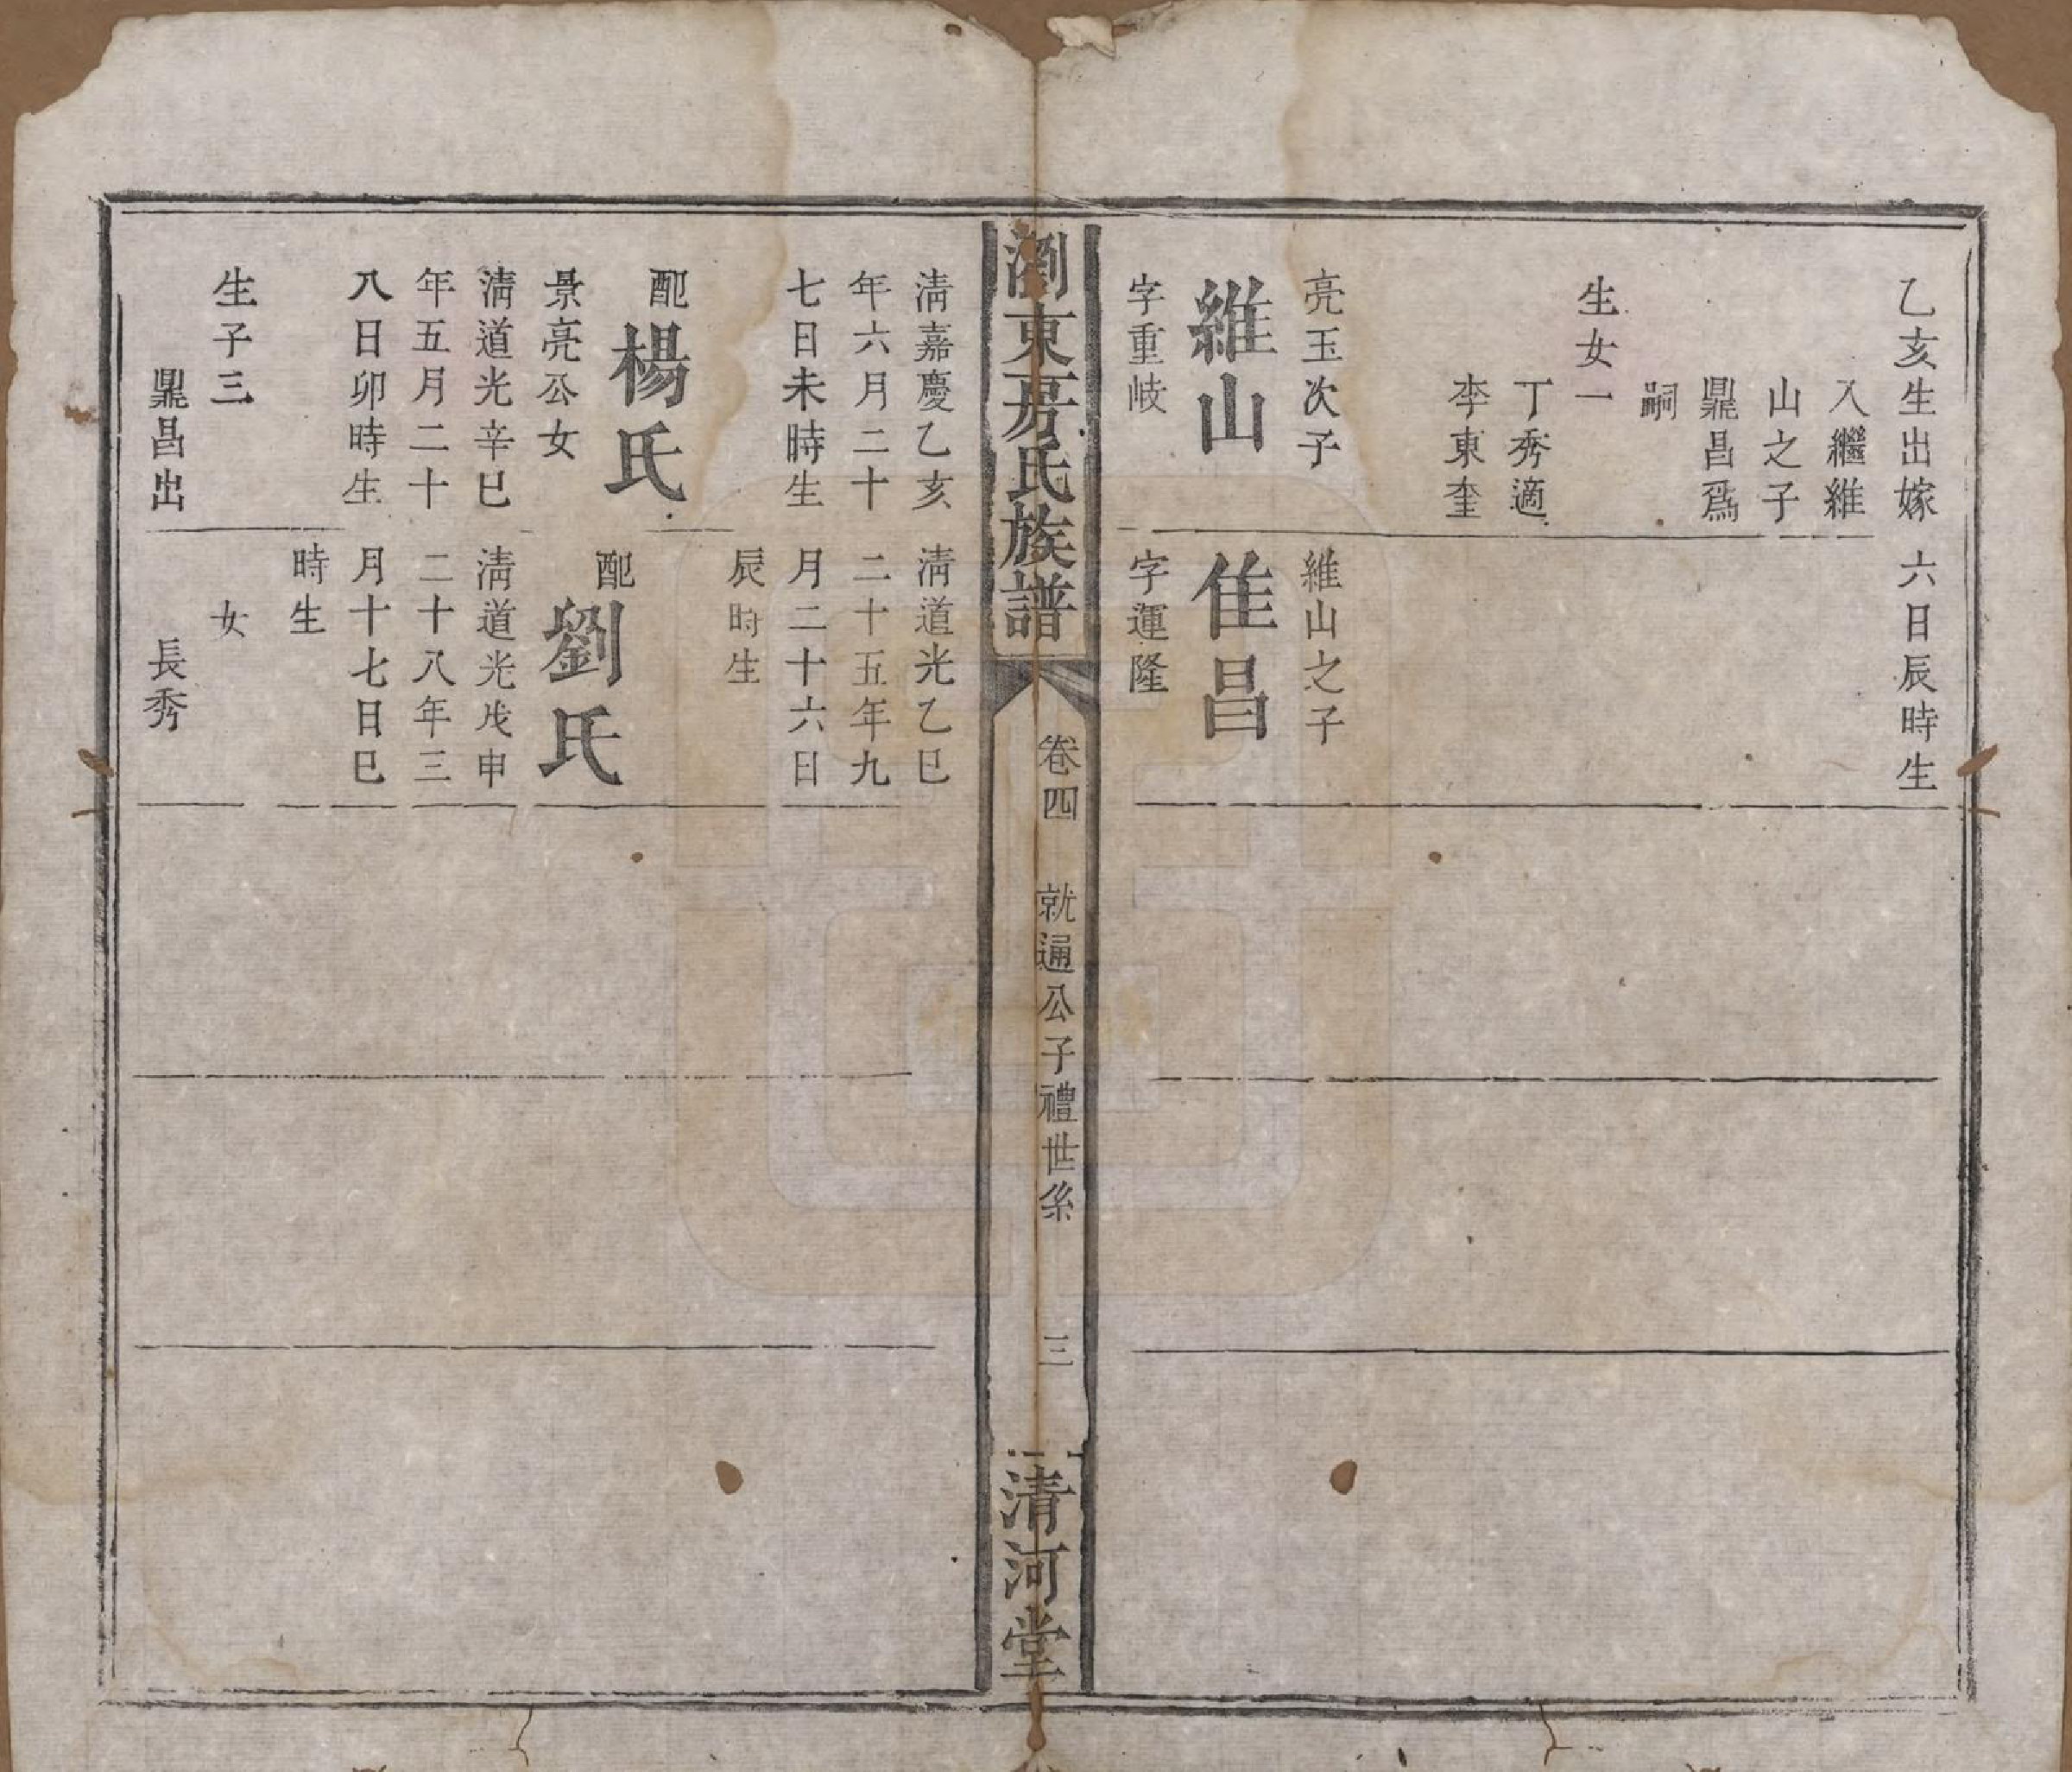 乙亥生出嫁
入繼維
山之子
鼎昌爲
嗣
生女一
丁秀適
李東奎
六日辰時生
亮玉次子
維山
字重岐
維山之子
隹昌
字運隆
瀏東房氏族譜
卷四
就通公子禮世系
三
清河堂
清嘉慶乙亥
年六月二十
七日未時生
配楊氏
景亮公女
清道光辛巳
年五月二十
八日卯時生
生子三
鼎昌出
清道光乙巳
二十五年九
月二十六日
辰時生
配劉氏
清道光戊申
二十八年三
月十七日巳
時生
女
長秀